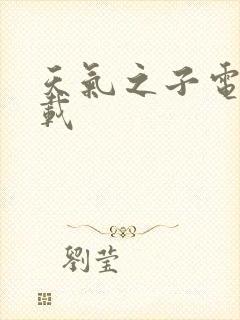 天氣之子電
載
劉瑩